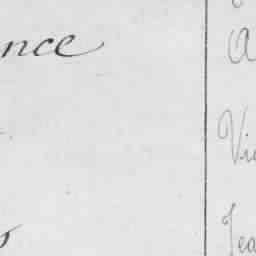 nce
A
Vic
Jea